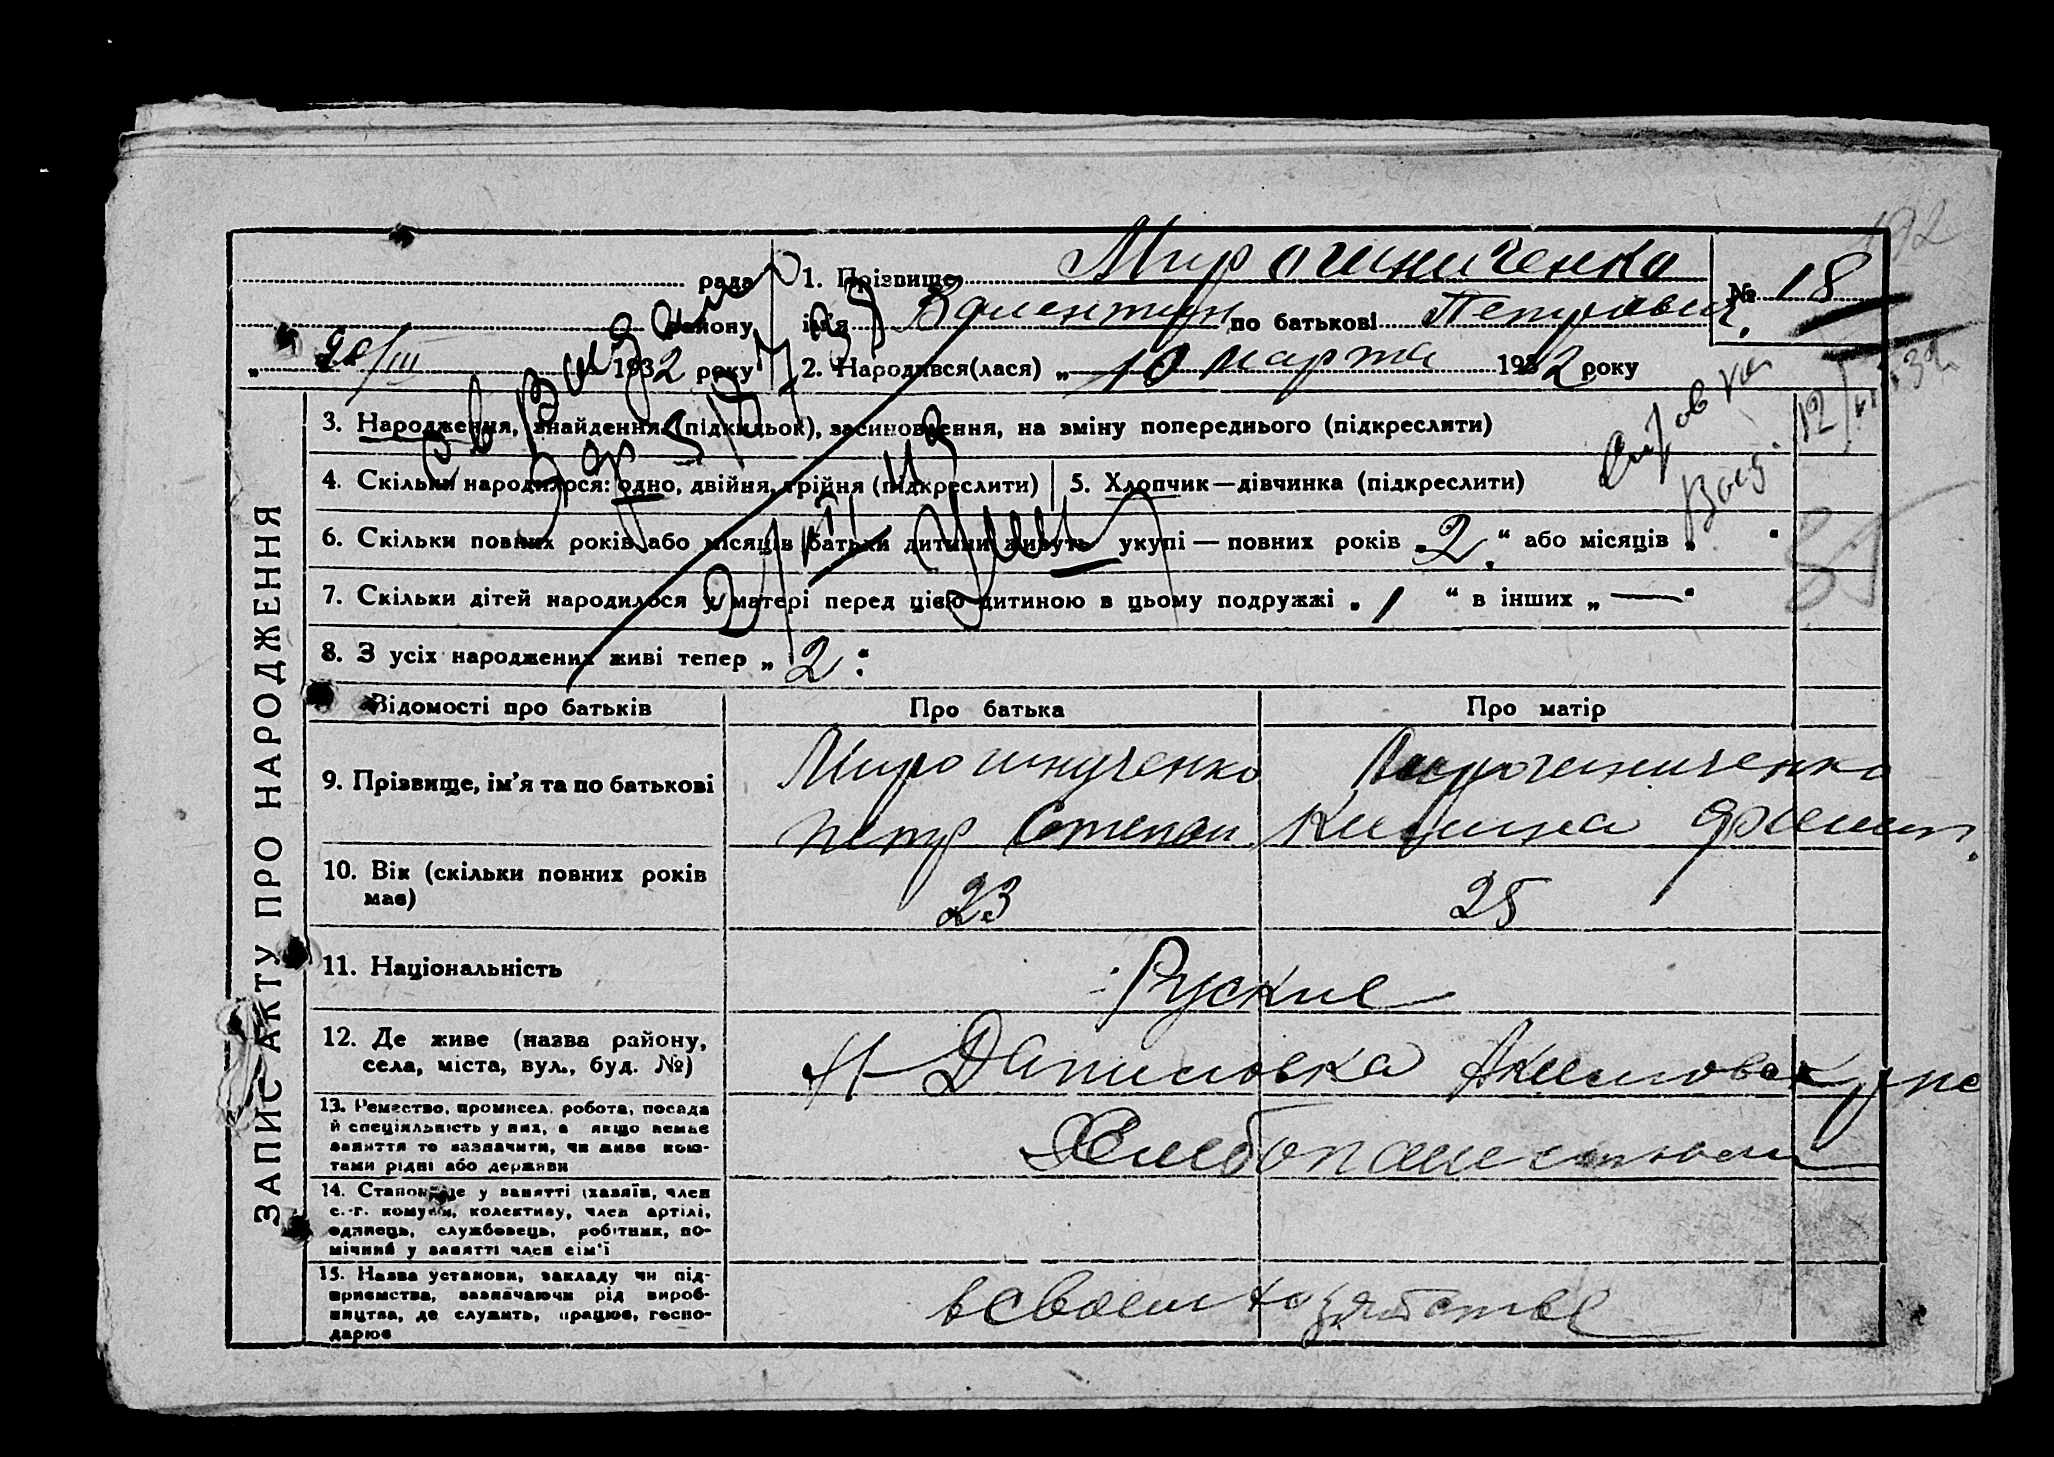 192
рада
району
„ 20/III 1932 року
1. Прізвище Мирошниченко
ім'я Валентин по батькові Петрович
2. Народився(лася) „ 10 марта 1932 року
№ 18
3. Народження, знайдення (підкидьок), засиновлення, на зміну попереднього (підкреслити)
4. Скільки народилося: одно, двійня, трійня (підкреслити)
5. Хлопчик—дівчинка (підкреслити)
6. Скільки повних років або місяців батьки дитини живуть укупі — повних років „ 2 “ або місяців „ “
7. Скільки дітей народилося у матері перед цією дитиною в цьому подружжі „ 1 “ в інших „ — “
8. З усіх народжених живі тепер „ 2 “
ЗАПИС АКТУ ПРО НАРОДЖЕННЯ
Відомості про батьків
Про батька
Про матір
9. Прізвище, ім'я та по батькові
Мирошниченко
Петр Степан
Мирошниченко
10. Вік (скільки повних років
має)
23
25
11. Національність
Руские
12. Де живе (назва району,
села, міста, вул., буд. №)
Даниловка Акимовск
13. Ремество, промисел, робота, посада
й спеціяльність у них, а якщо немає
заняття то зазначити, чи живе кош-
тами рідні або держави
14. Становище у занятті (хазяїв, член
с.-г. комуни, колективу, член артілі,
одинець, службовець, робітник, по-
мічний у занятті член сім'ї
15. Назва установи, закладу чи під-
приємства, зазначаючи рід вироб-
ництва, де служить, працює, госпо-
дарює
в своем хозяйстве